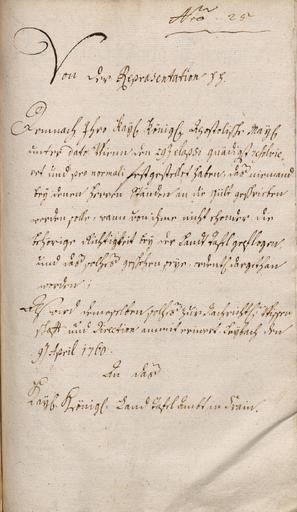 Nro. 25
Von der Repræsentation pp.
Demnach Ihro Kayl. Königl. Apostolische Mayt.
unter dato Wienn den 29t elapsi gnädigst resolvi-
ret und pro normali festgestellet haben, daß niemand
bey denen Herren Ständen an die gült geschrieben
werden solle, wann von ihme nicht ehender die
behörige Richtigkeit bey der Landtafl gepflogen,
und daß solches geschehen seye, ordentl. dargethan
worden;
Als wird demeselben solches zur Nachricht, Wissen-
schafft und Direction anmit erinert. Laybach den
9t April 1760.
An das
Kayl. Königl. Landtafel Ambt in Crain.